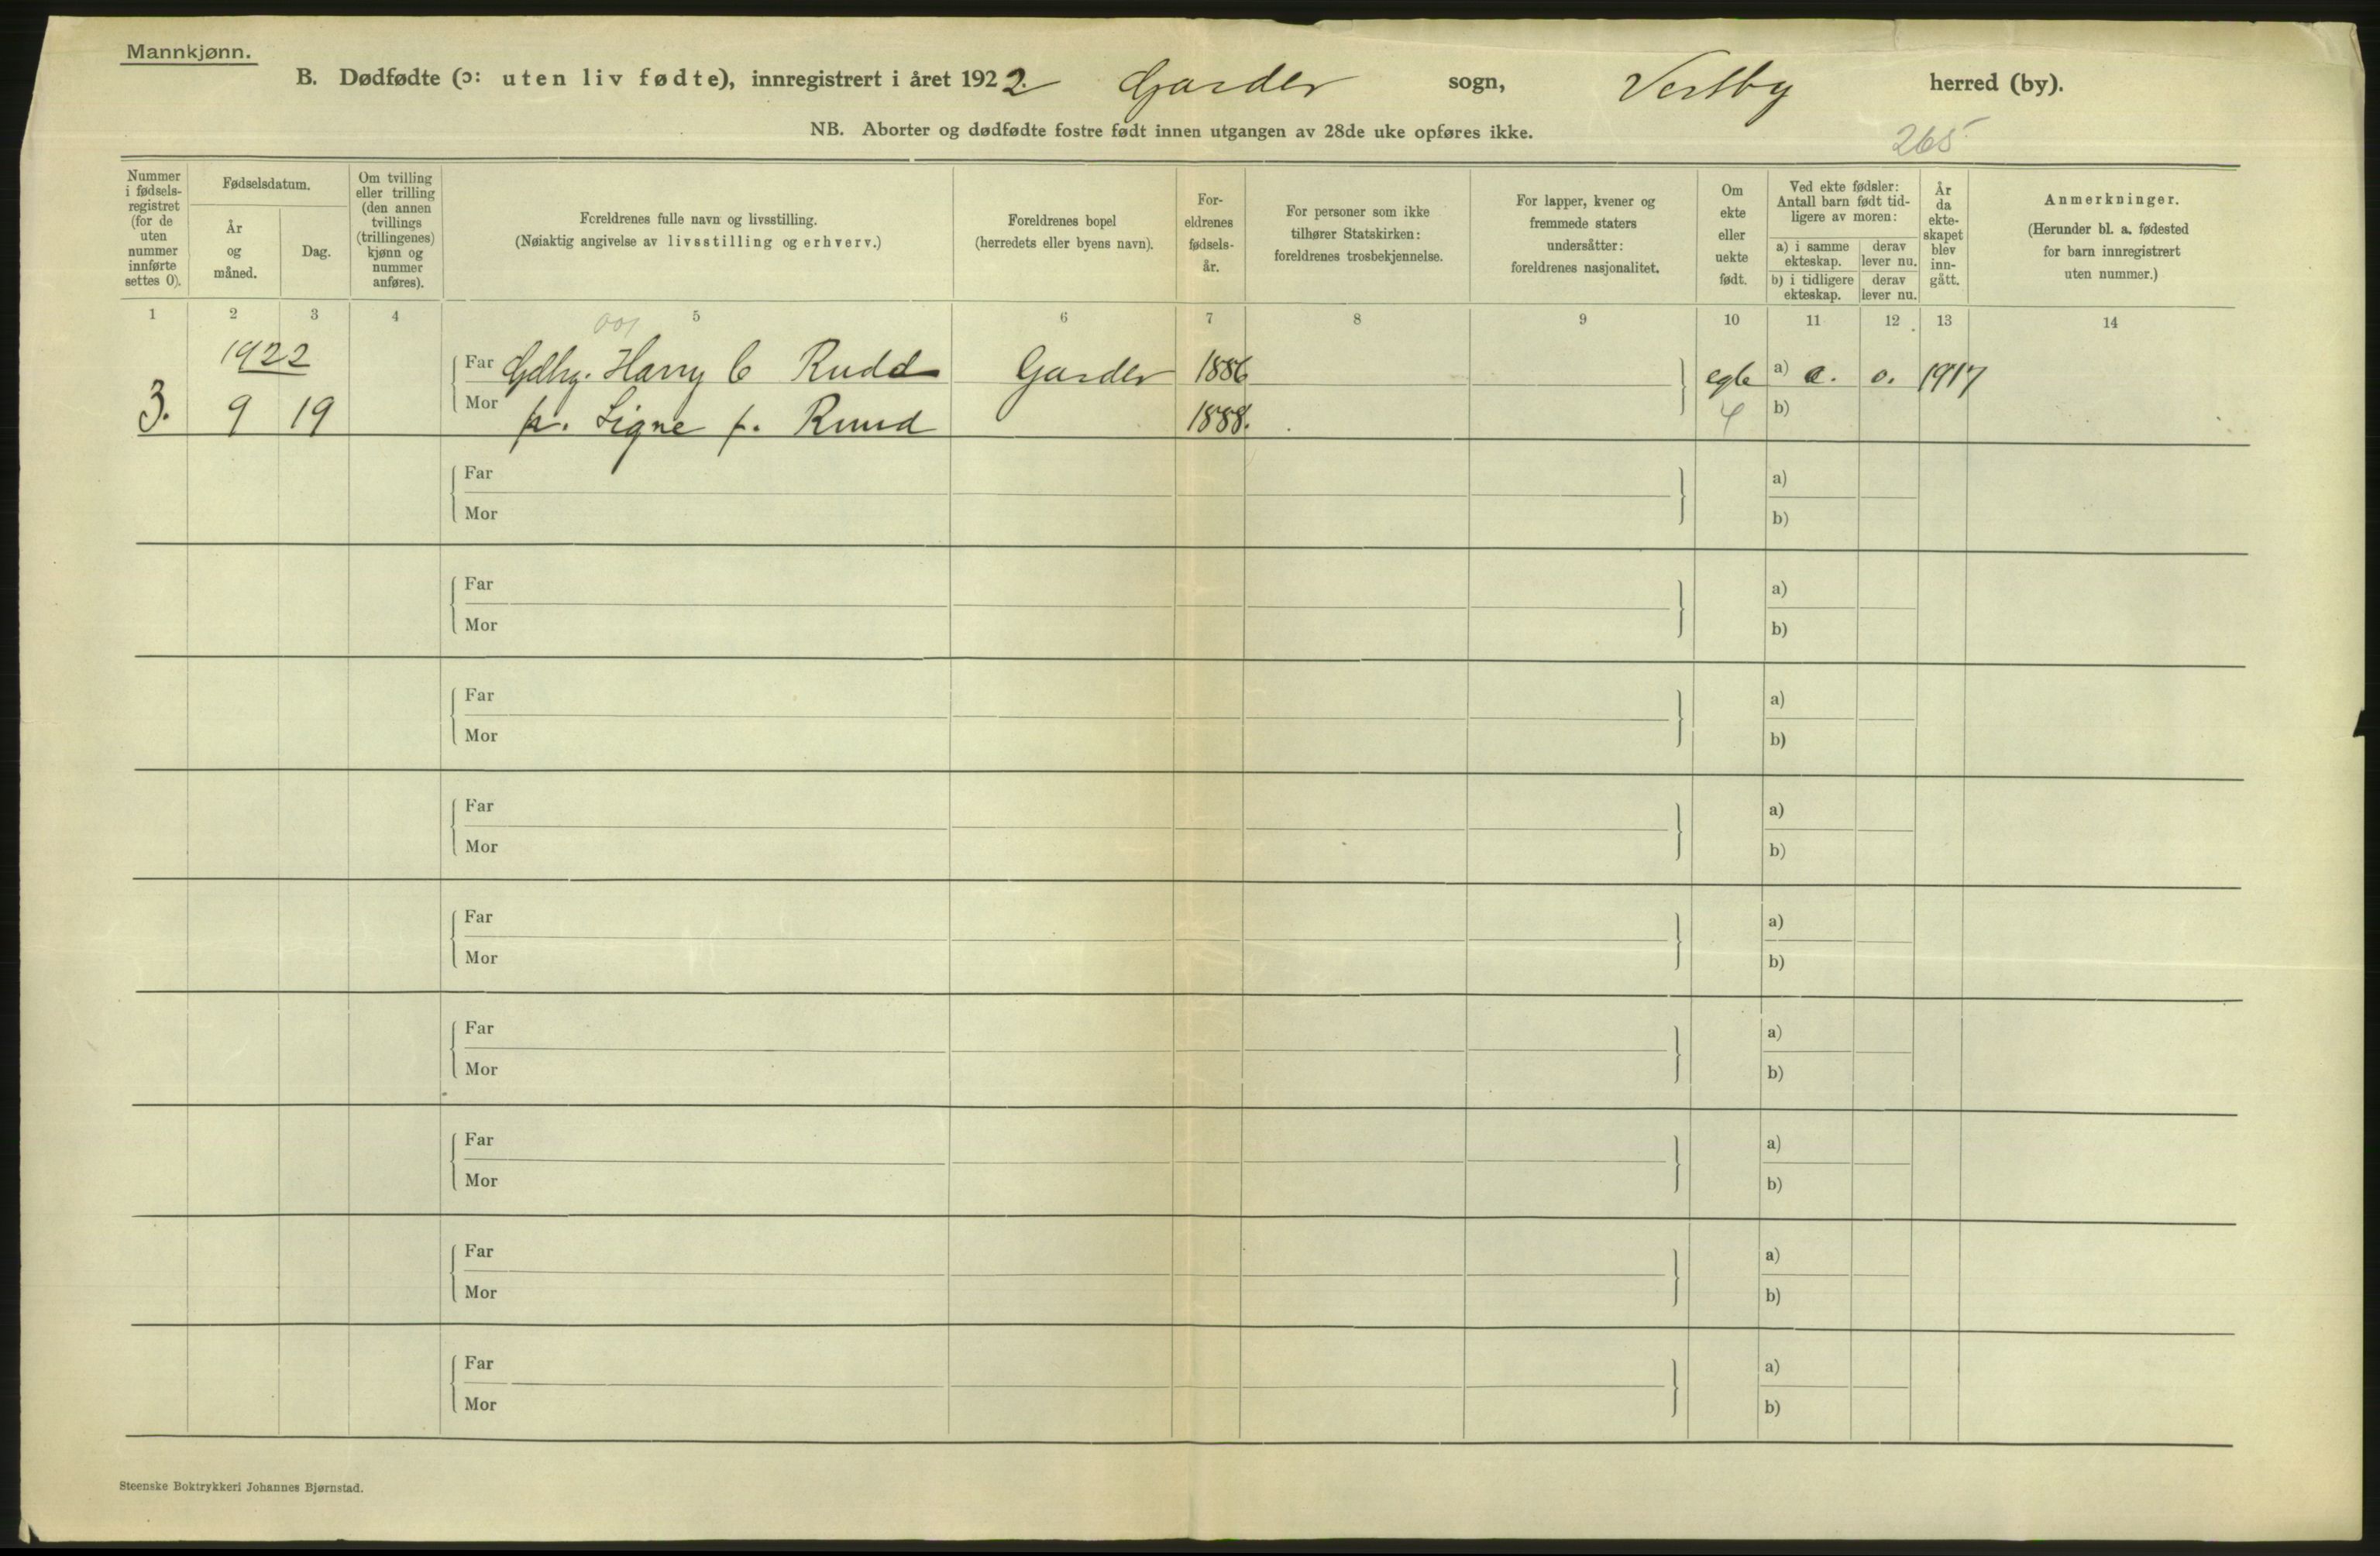 Mannkjønn.
B. Dødfødte (ɔ: uten liv fødte), innregistrert i året 1922. Garder sogn, Vestby herred (by).
NB. Aborter og dødfødte fostre født innen utgangen av 28de uke opføres ikke.
265
Nummer
i fødsels-
registret
(for de
uten
nummer
innførte
settes 0).
Fødselsdatum.
År
og
måned.
Dag.
Om tvilling
eller trilling
(den annen
tvillings
(trillingenes)
kjønn og
nummer
anføres).
Foreldrenes fulle navn og livsstilling.
(Nøiaktig angivelse av livsstilling og erhverv.)
Foreldrenes bopel
(herredets eller byens navn).
For-
eldrenes
fødsels-
år.
For personer som ikke
tilhører Statskirken:
foreldrenes trosbekjennelse.
For lapper, kvener og
fremmede staters
undersåtter:
foreldrenes nasjonalitet.
Om
ekte
eller
uekte
født.
Ved ekte fødsler:
Antall barn født tid-
ligere av moren:
a) i samme
ekteskap.
derav
lever nu.
b) i tidligere
ekteskap.
derav
lever nu.
År
da
ekte-
skapet
blev
inn-
gått.
Anmerkninger.
(Herunder bl. a. fødested
for barn innregistrert
uten nummer.)
1 2 3 4 5 6 7 8 9 10 11 12 13 14
001
1922
Far Gdbr. Harry C Rudd Garder 1886 egte a) o. 1917
3. 9 19 Mor Signe f. Ruud 1888. 4 b)
Far a)
Mor b)
Far a)
Mor b)
Far a)
Mor b)
Far a)
Mor b)
Far a)
Mor b)
Far a)
Mor b)
Far a)
Mor b)
Far a)
Mor b)
Far a)
Mor b)
Steenske Boktrykkeri Johannes Bjørnstad.